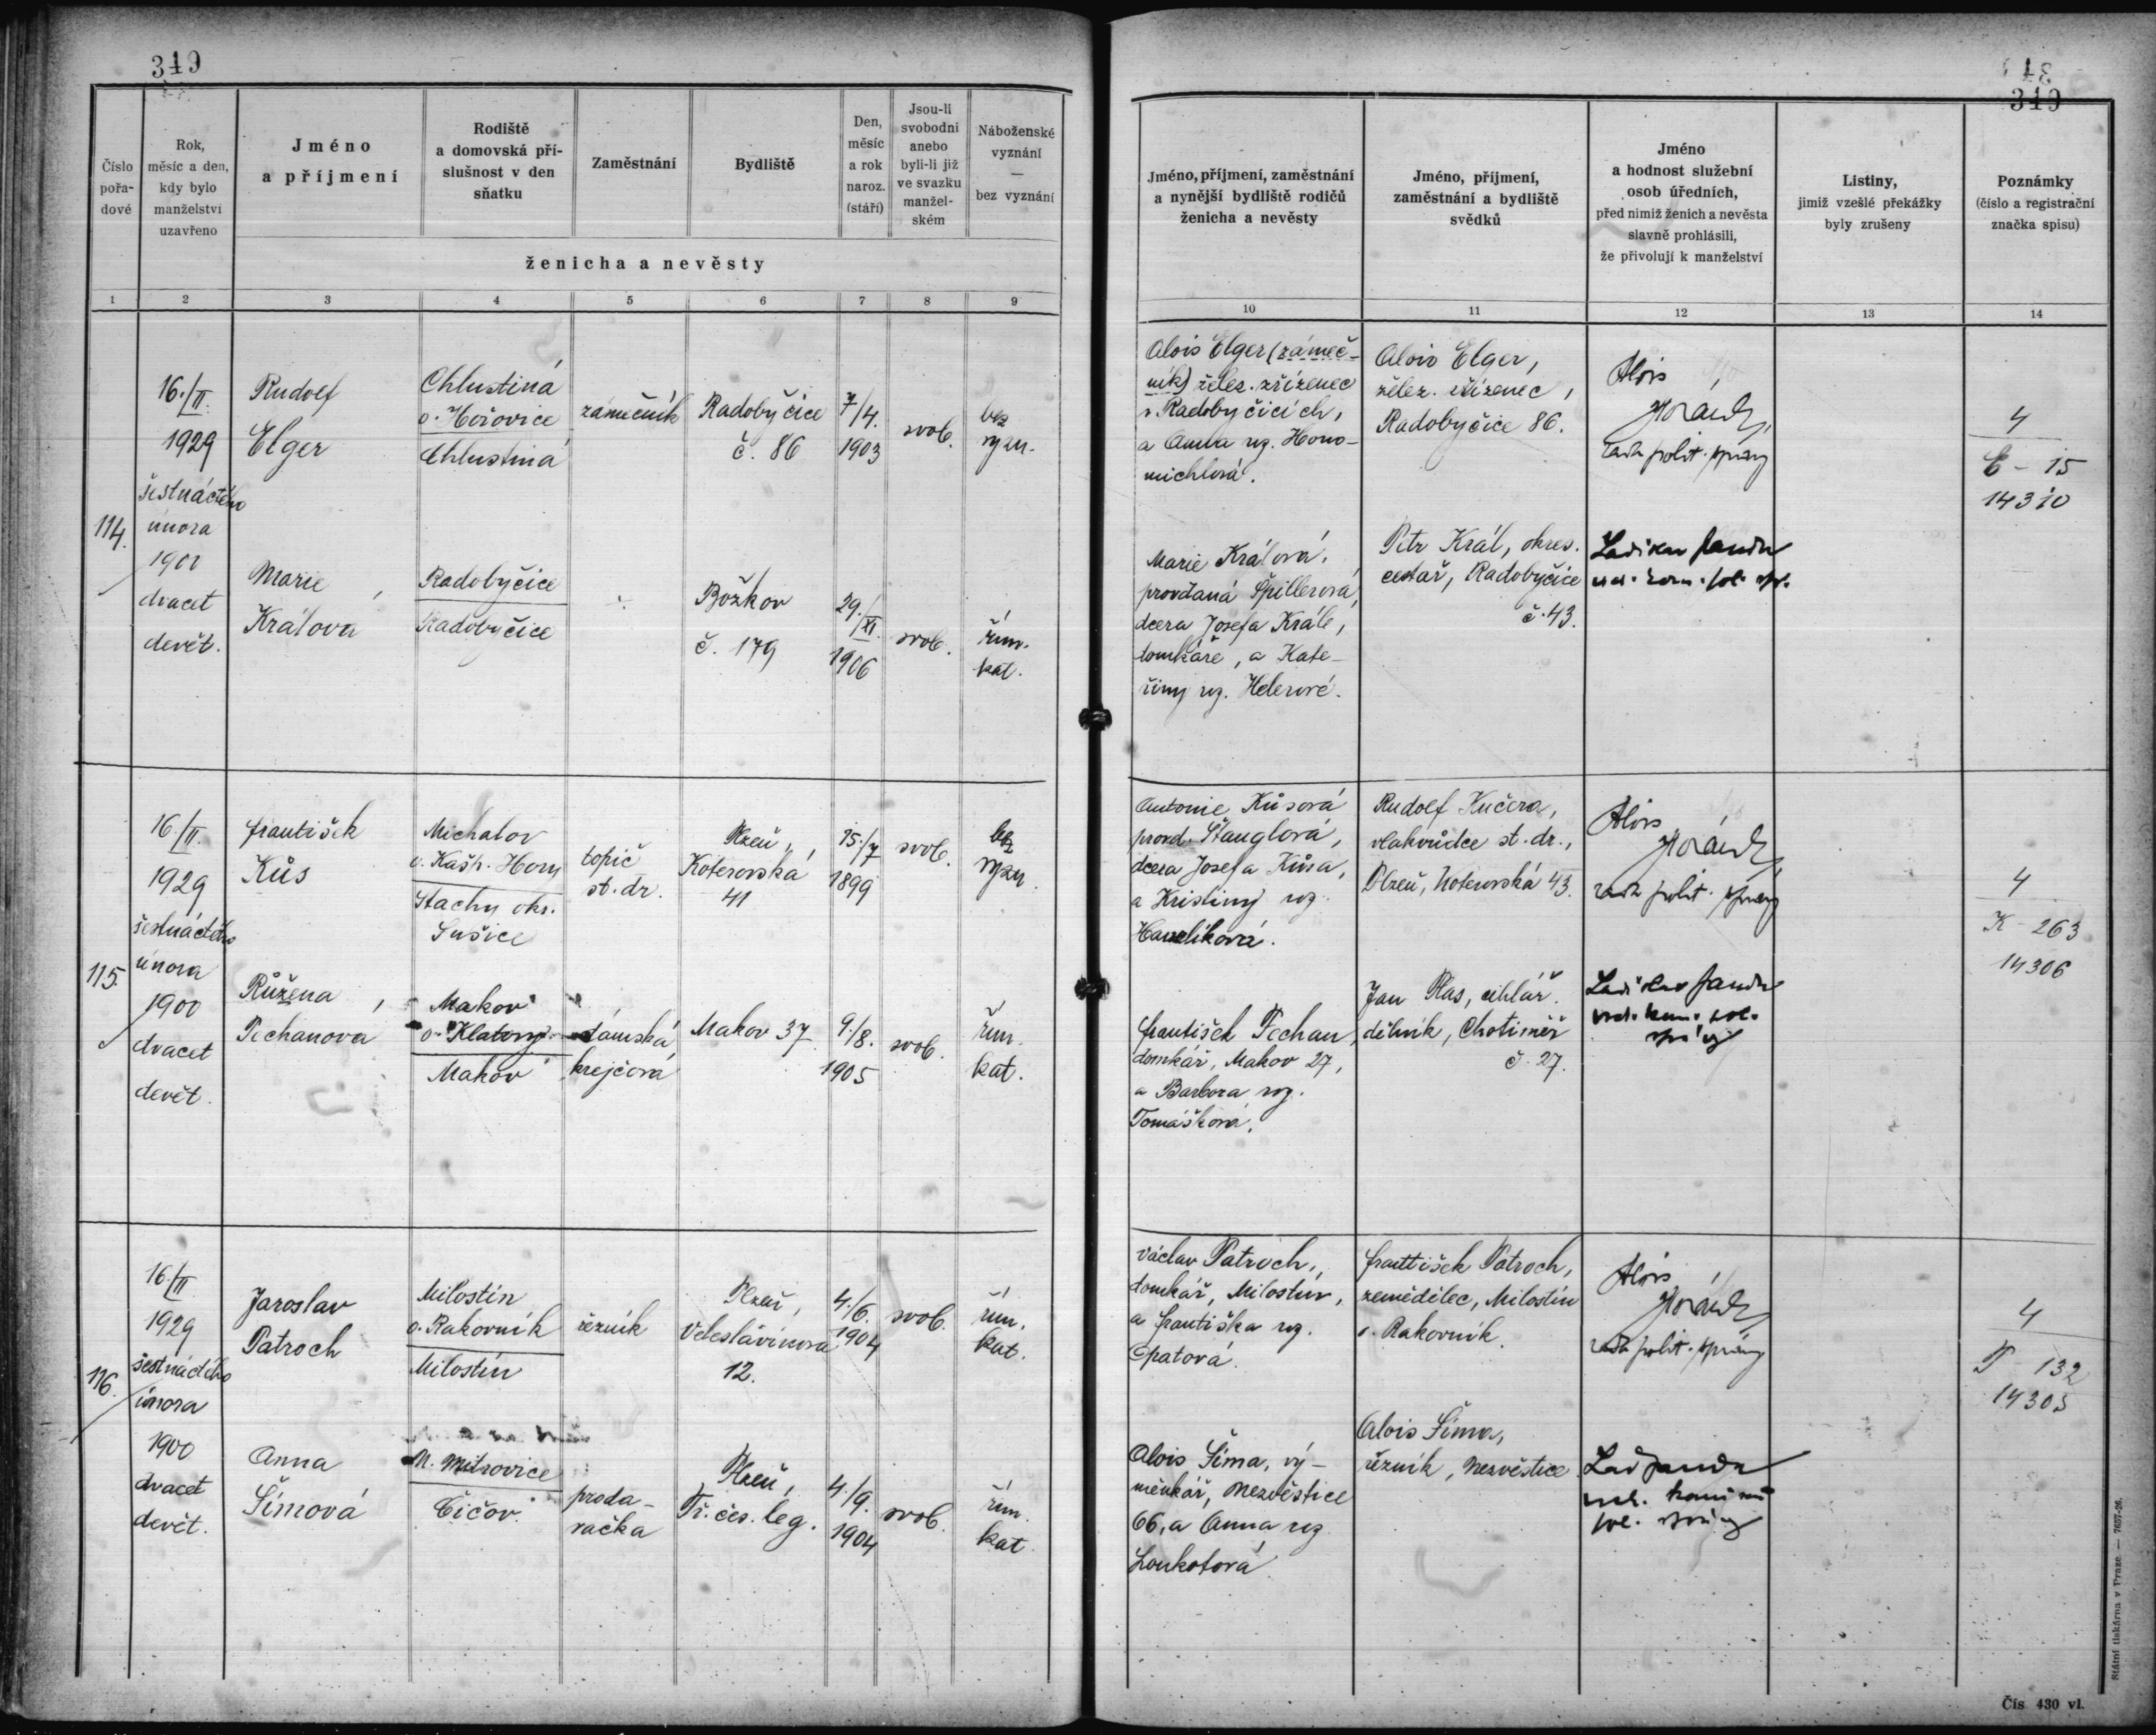 349
Číslo pořa-dové
Rok, měsíc a den, kdy bylo manželství uzavřeno
Jméno a příjmení
Rodiště a domovská pří-slušnost v den sňatku
Zaměstnání
Bydliště
Den, měsíc a rok naroz. (stáří)
Jsou-li svobodni anebo byli-li již ve svazku manžel-ském
Náboženské vyznání — bez vyznání
ženicha a nevěsty
1 2 3 4 5 6 7 8 9
114.
16./II.
1929
šestnáctého
února
1900
dvacet
devět.
Rudolf
Elger
Chlustiná
o. Hořovice
Chlustiná
zámečník
Radobyčice
č. 86
7/4.
1903
svob.
bez
vyzn.
Marie
Králová
Radobyčice
Radobyčice
Božkov
č. 179
29./XI.
1906
svob.
řím.
kat.
115.
16./II.
1929
šestnáctého
února
1900
dvacet
devět.
František
Kůs
Michalov
o. Kašp. Hory
Stachy okr.
Sušice
topič
st. dr.
Plzeň,
Koterovská
41
15./7
1899
svob.
bez
vyzn.
Růžena
Pechanová
Makov
o. Klatovy
Makov
dámská
krejčová
Makov 37
9./8.
1905
svob.
řím.
kat.
116.
16./II
1929
šestnáctého
února
1900
dvacet
devět.
Jaroslav
Patroch
Milostín
o. Rakovník
Milostín
řezník
Plzeň,
Veleslavínova
12.
4./6.
1904
svob.
řím.
kat.
Anna
Šímová
N. Mitrovice
Čičov
proda-
vačka
Plzeň,
Tř. čes. leg.
4./9.
1904
svob.
řím.
kat.
349
Jméno, příjmení, zaměstnání
a nynější bydliště rodičů
ženicha a nevěsty
Jméno, příjmení,
zaměstnání a bydliště
svědků
Jméno
a hodnost služební
osob úředních,
před nimiž ženich a nevěsta
slavně prohlásili,
že přivolují k manželství
Listiny,
jimiž vzešlé překážky
byly zrušeny
Poznámky
(číslo a registrační
značka spisu)
10 11 12 13 14
Alois Elger (zámeč-
ník) želez. zřízenec
v Radobyčicích,
a Anna roz. Hono-
michlová.
Alois Elger,
želez. zřízenec,
Radobyčice 86.
Alois
rada polit. správy
4
E - 15
14310
Marie Králová,
provdaná Špillerová,
dcera Josefa Krále,
domkáře, a Kate-
řiny roz. Helerové.
Petr Král, okres.
cestař, Radobyčice
č. 43.
Ladislav Janda
Antonie Kůsová
provd. Štanglová,
dcera Josefa Kůsa,
a Kristiny roz.
Hanzlíková.
Rudolf Kučera,
vlakvůdce st. dr.,
Plzeň, Koterovská 43.
Alois
rada polit. správy
4
K - 263
14306
František Pechan,
domkář, Makov 27,
a Barbora roz.
Tomášková.
Jan Plas, cihlář.
dělník, Chotiměř
č. 27.
Ladislav Janda
Václav Patroch,
domkář, Milostín,
a Františka roz.
Opatová.
František Patroch,
zemědělec, Milostín
o. Rakovník.
Alois
rada polit. správy
4
P 132
14305
Alois Šíma, vý-
měnkář, Nezvěstice
66, a Anna roz.
Loukotová
Alois Šíma,
řezník, Nezvěstice
Lad Janda
Státní tiskárna v Praze. — 7657-26.
Čís 430 vl.